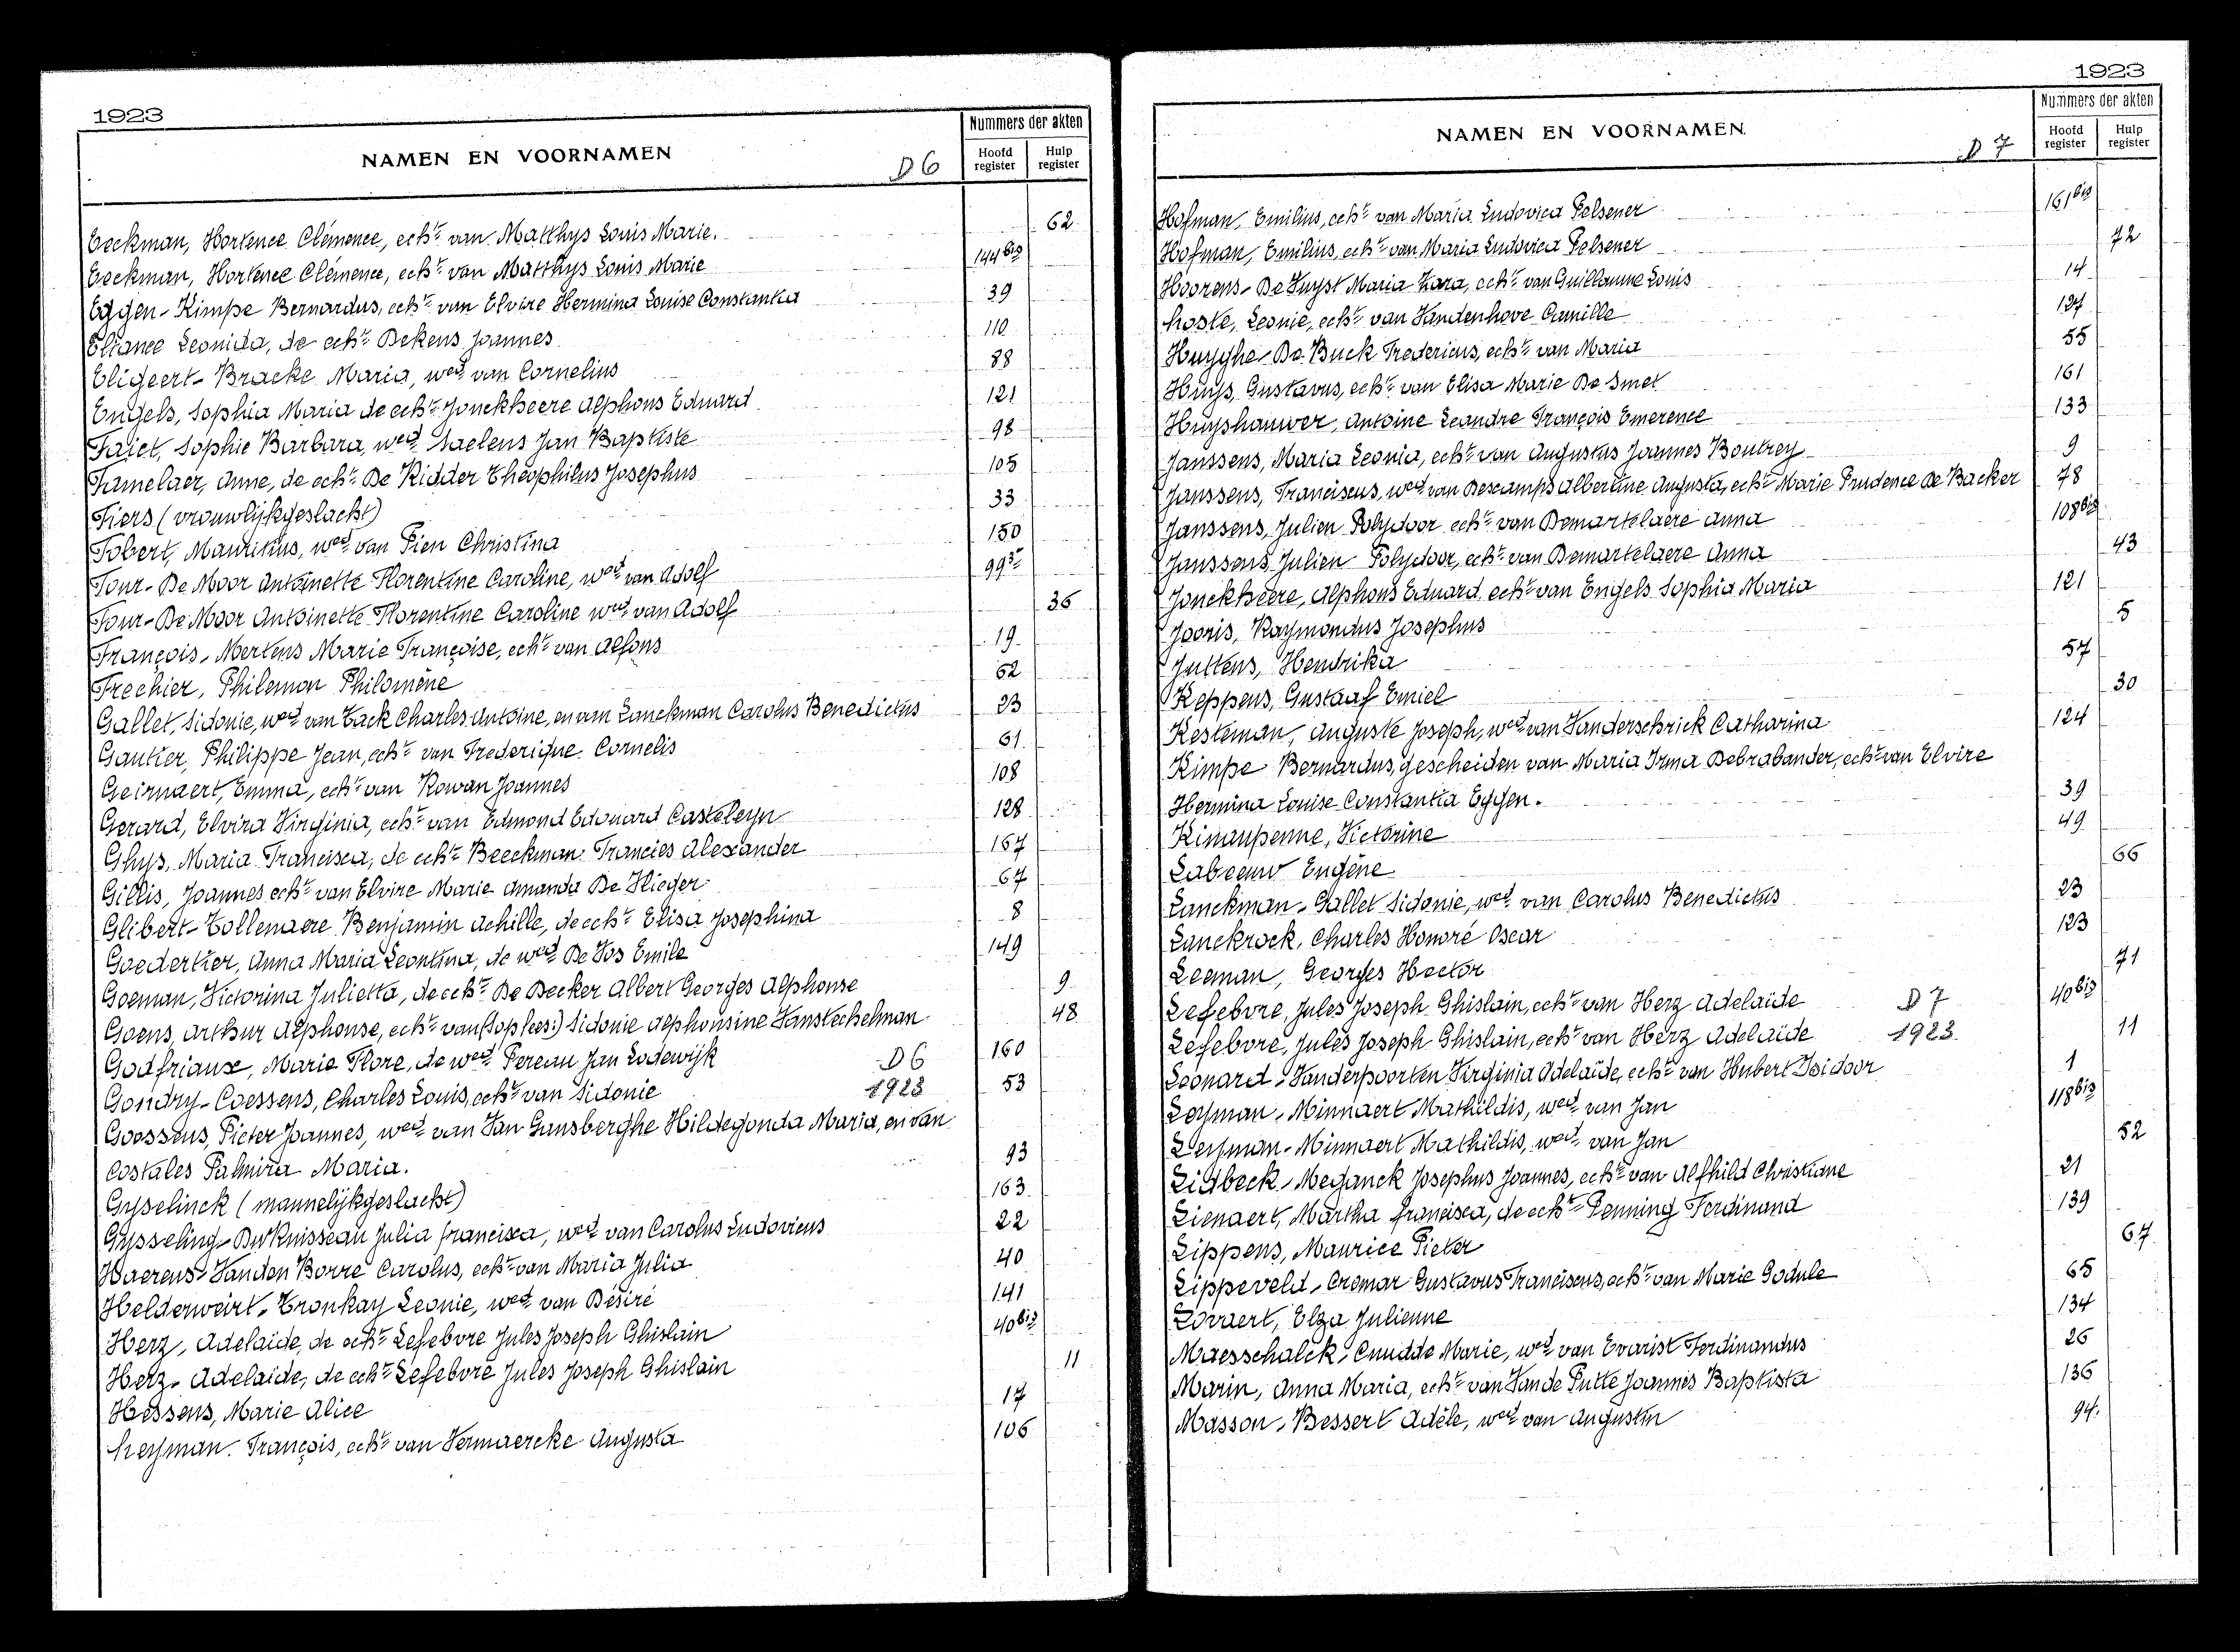 1923
NAMEN EN VOORNAMEN
D 6
Nummers der akten
Hoofd register
Hulp register
Eeckman, Hortence Clémence, echt. van Matthys Louis Marie. 62
Eeckman, Hortence Clémence, echt. van Matthys Louis Marie 144bis
Eggen-Kimpe Bernardus, echt. van Elvire Hermina Louise Constantia 39
Eliance Leonida, de echt. Dekens Joannes 110
Eligeert-Bracke Maria, wed. van Cornelius 88
Engels, Sophia Maria de echt. Jonckheere Alphons Eduard 121
Faict, Sophie Barbara, wed. Saelens Jan Baptiste 98
Famelaer, Anne, de echt. De Ridder Théophilus Josephus 105
Fiers (vrouwlijkgeslacht) 33
Fobert, Mauritius, wed. van Pien Christina 150
Four-De Moor Antoinette Florentine Caroline, wed. van Adolf 99
Four-De Moor Antoinette Florentine Caroline wed. van Adolf 36
François-Mertens Marie Françoise, echt. van Alfons 19
Frechier, Philemon Philomène 62
Gallet, Sidonie, wed. van Tack Charles Antoine, en van Lanckman Carolus Benedictus 23
Gautier, Philippe Jean, echt. van Frederique Cornelis 61
Geirnaert, Emma, echt. van Rowan Joannes 108
Gerard, Elvira Virginia, echt. van Edmond Edouard Casteleyn 128
Ghys, Maria Francisca, de echt. Beeckman Francies Alexander 167
Gillis, Joannes echt. van Elvire Marie Amanda De Vlieger 67
Glibert-Tollenaere Benjamin Achille, de echt. Elisa Josephina 8
Goedertier, Anna Maria Leontina, de wed. De Vos Emile 149
Goeman, Victorina Julietta, de echt. De Decker Albert Georges Alphonse 9
Goens, Arthur Alphonse, echt. van (Sophees:) Sidonie Alphonsine Vanstechelman 48
Godfriaux, Marie Flore, de wed. Pereau Jan Lodewijk D6 160
Gondry-Coessens, Charles Louis, echt. van Sidonie 1923 53
Goossens, Pieter Joannes, wed. van Van Gansberghe Hildegonda Maria, en van
Costales Palmira Maria. 93
Gyselinck (mannelijkgeslacht) 163
Gysseling-Du Knisseau Julia Francisca, wed. van Carolus Ludovicus 22
Haerens-Vanden Borre Carolus, echt. van Maria Julia 40
Helderweirt-Tronkay Leonie, wed. van Désiré 141
Herz, Adelaide, de echt. Lefebvre Jules Joseph Ghislain 40bis
Herz-Adelaide, de echt. Lefebvre Jules Joseph Ghislain 11
Hessens, Marie Alice 17
Heyman François, echt. van Vermaercke Augusta 106
1923
NAMEN EN VOORNAMEN
D 7
Nummers der akten
Hoofd register
Hulp register
Hofman, Emilius, echt. van Maria Ludovica Pelsener 161bis
Hofman, Emilius, echt. van Maria Ludovica Pelsener 72
Hoorens-De Suyst Maria Zara, echt. van Guillaume Louis 14
Hoste, Leonie, echt. van Vandenhove Camille 127
Huyghe-De Buck Fredericus, echt. van Maria 55
Huys, Gustavus, echt. van Elisa Marie De Smet 161
Huyshauwer, Antoine Leandre François Emerence 133
Janssens, Maria Leonia, echt. van Augustus Joannes Boutrey 9
Janssens, Franciscus, wed. van Descamps Albertine Augusta, echt. Marie Prudence De Backer 78
Janssens, Julien Polydoor echt. van Demartelaere Anna 108bis
Janssens, Julien Polydoor, echt. van Demartelaere Anna 43
Jonckheere, Alphons Eduard echt. van Engels Sophia Maria 121
Jooris, Raymondus Josephus 5
Juttens, Hendrika 57
Keppens, Gustaaf Emiel 30
Kesteman, Auguste Joseph, wed. van Vanderschrick Catharina 124
Kimpe Bernardus, gescheiden van Maria Irma Debrabander, echt. van Elvire
Hermina Louise Constantia Eggen. 39
Kimaupenne, Victorine 49
Labeeuw Eugène 66
Lanckman-Gallet Sidonie, wed. van Carolus Benedictus 23
Lanckrock, Charles Honoré Oscar 123
Leeman, Georges Hector 71
Lefebvre, Jules Joseph Ghislain, echt. van Herz Adelaïde D 7 40bis
Lefebvre, Jules Joseph Ghislain, echt. van Herz Adelaïde 1923 11
Leonard-Vanderpoorten Virginia Adelaïde, echt. van Hubert Isidoor 1
Leyman-Minnaert Mathildis, wed. van Jan 118bis
Leyman-Minnaert Mathildis, wed. van Jan 52
Lidbeck-Meganck Josephus Joannes, echt. van Alfhild Christiane 21
Lienaert, Martha Francisca, de echt. Penning Ferdinand 139
Lippens, Maurice Pieter 67
Lippeveld-Cremar Gustavus Franciscus, echt. van Marie Godule 65
Lovaert, Elza Julienne 134
Maesschalck-Cnudde Marie, wed. van Evarist Ferdinandus 26
Marin, Anna Maria, echt. van Vande Putte Joannes Baptista 136
Masson-Bessert Adèle, wed. van Augustin 94